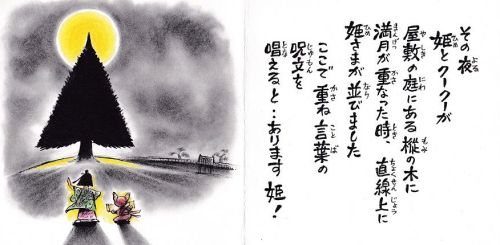 その夜
姫とクークーが
屋敷の庭にある樅の木に
満月が重なった時、直線上に
姫さまが並びました
ここで重ね言葉の
呪文を
唱えると…あります 姫!